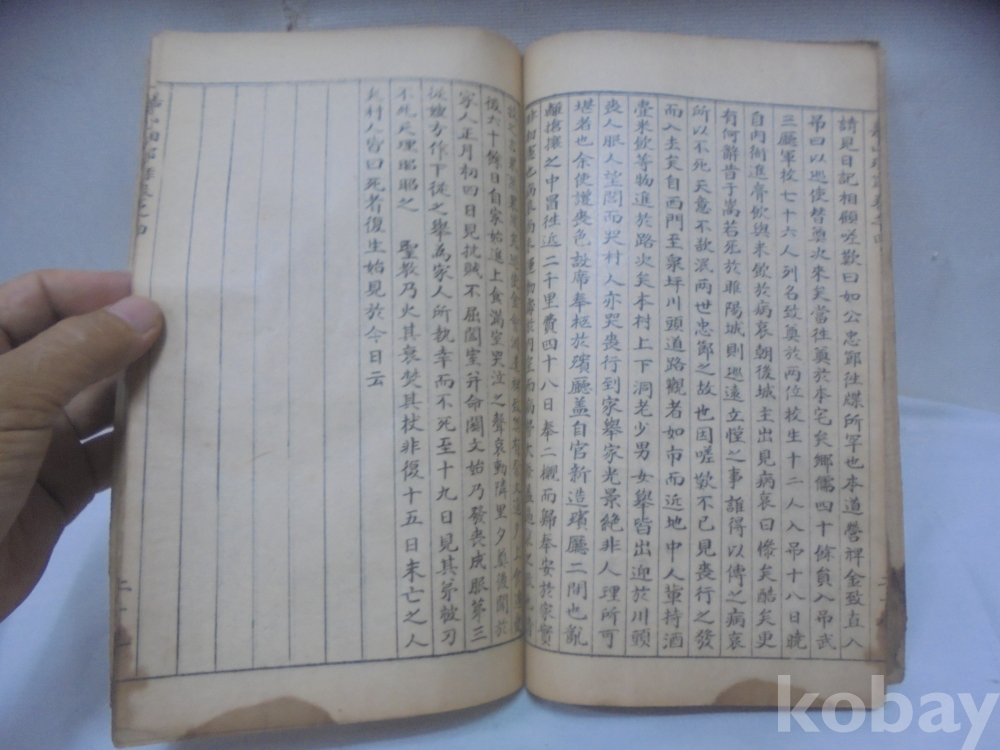 請見日記相顧嗟歎曰如公忠節往牒所罕也本道營裨金致直入
吊曰以巡使替奠次來矣當往奠於本宅矣鄉儒四十餘員入吊武
三廳軍校七十六人列名致奠於兩位校生十二人入吊十八日曉
自內衙進膏飮與米飮於病哀朝後城主出見病哀曰慘矣酷矣史
有何辭昔于嵩若死於睢陽城則巡遠立慬之事誰得以傳之病哀
所以不死天意不欲泯兩世忠節之故也因嗟歎不已見喪行之發
而入去矣自西門至泉坪川頭道路觀者如市而近地中人輩持酒
壺米飮等物進於路次矣本村上下洞老少男女擧皆出迎於川頭
喪人眼人望閭而哭村人亦哭喪行到家擧家光景絶非人理所可
堪者也余使護喪色故席奉柩於殯廳盖自官新造殯廳二間也亂
離搶攘之中冒徃近二千里費四十八日奉二櫬而歸奉安於家實
後六十餘日自家始進上食滿室哭泣之聲哀動隣里夕奠後聞於
家人正月初四日見抗賊不屈闔室幷命關文始乃發喪成服第三
從嫂方作下從之擧爲家人所執幸而不死至十九日見其弟被刃
不死天理昭昭之 聖敎乃火其衰焚其杖非復十五日未亡之人
矣村人皆曰死者復生始見於今日云
kobay